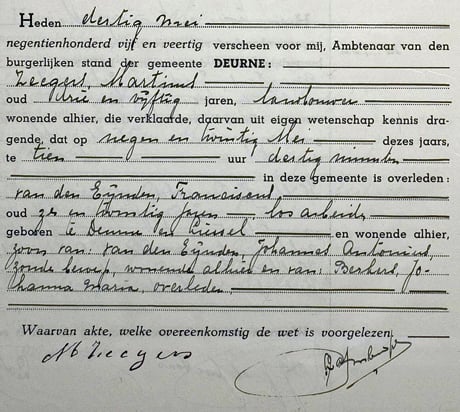 Heden dertig mei
negentienhonderd vijf en veertig verscheen voor mij, Ambtenaar van den
burgerlijken stand der gemeente DEURNE:
Zeegers, Martinus
oud drie en vijftig jaren, landbouwer
wonende alhier, die verklaarde, daarvan uit eigen wetenschap kennis dra-
gende, dat op negen en twintig Mei dezes jaars,
te tien uur dertig minuten
in deze gemeente is overleden:
van den Eijnden, Franciscus
oud zes en twintig jaren, bosarbeider
geboren te Deurne en Liessel en wonende alhier,
zoon van: van den Eijnden, Johannes Antonius,
zonder beroep, wonende alhier en van: Berkers, Jo-
hanna Maria, overleden.
Waarvan akte, welke overeenkomstig de wet is voorgelezen.
M Zeegers